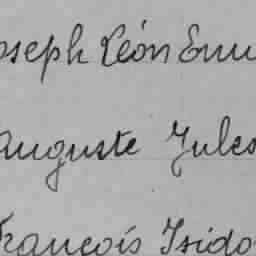 oseph Léon Emi
Auguste Jules
François Isido